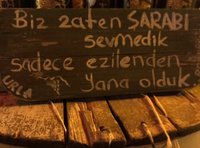 Biz zaten ŞARABI
sevmedik
sadece ezilenden
yana olduk
URLA